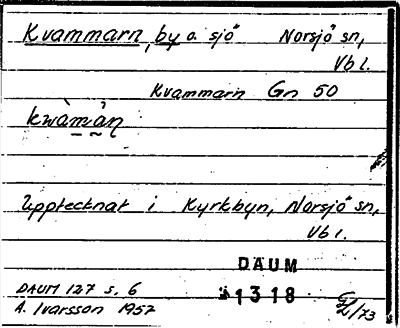 Kvammarn, by o. sjö Norsjö sn,
Vbl.
Kvammarn Gn 50
kwàmàn
Upptecknat i Kyrkbyn, Norsjö sn,
Vbl.
DAUM
1318
DAUM 127 s. 6
A. Ivarsson 1957
/73